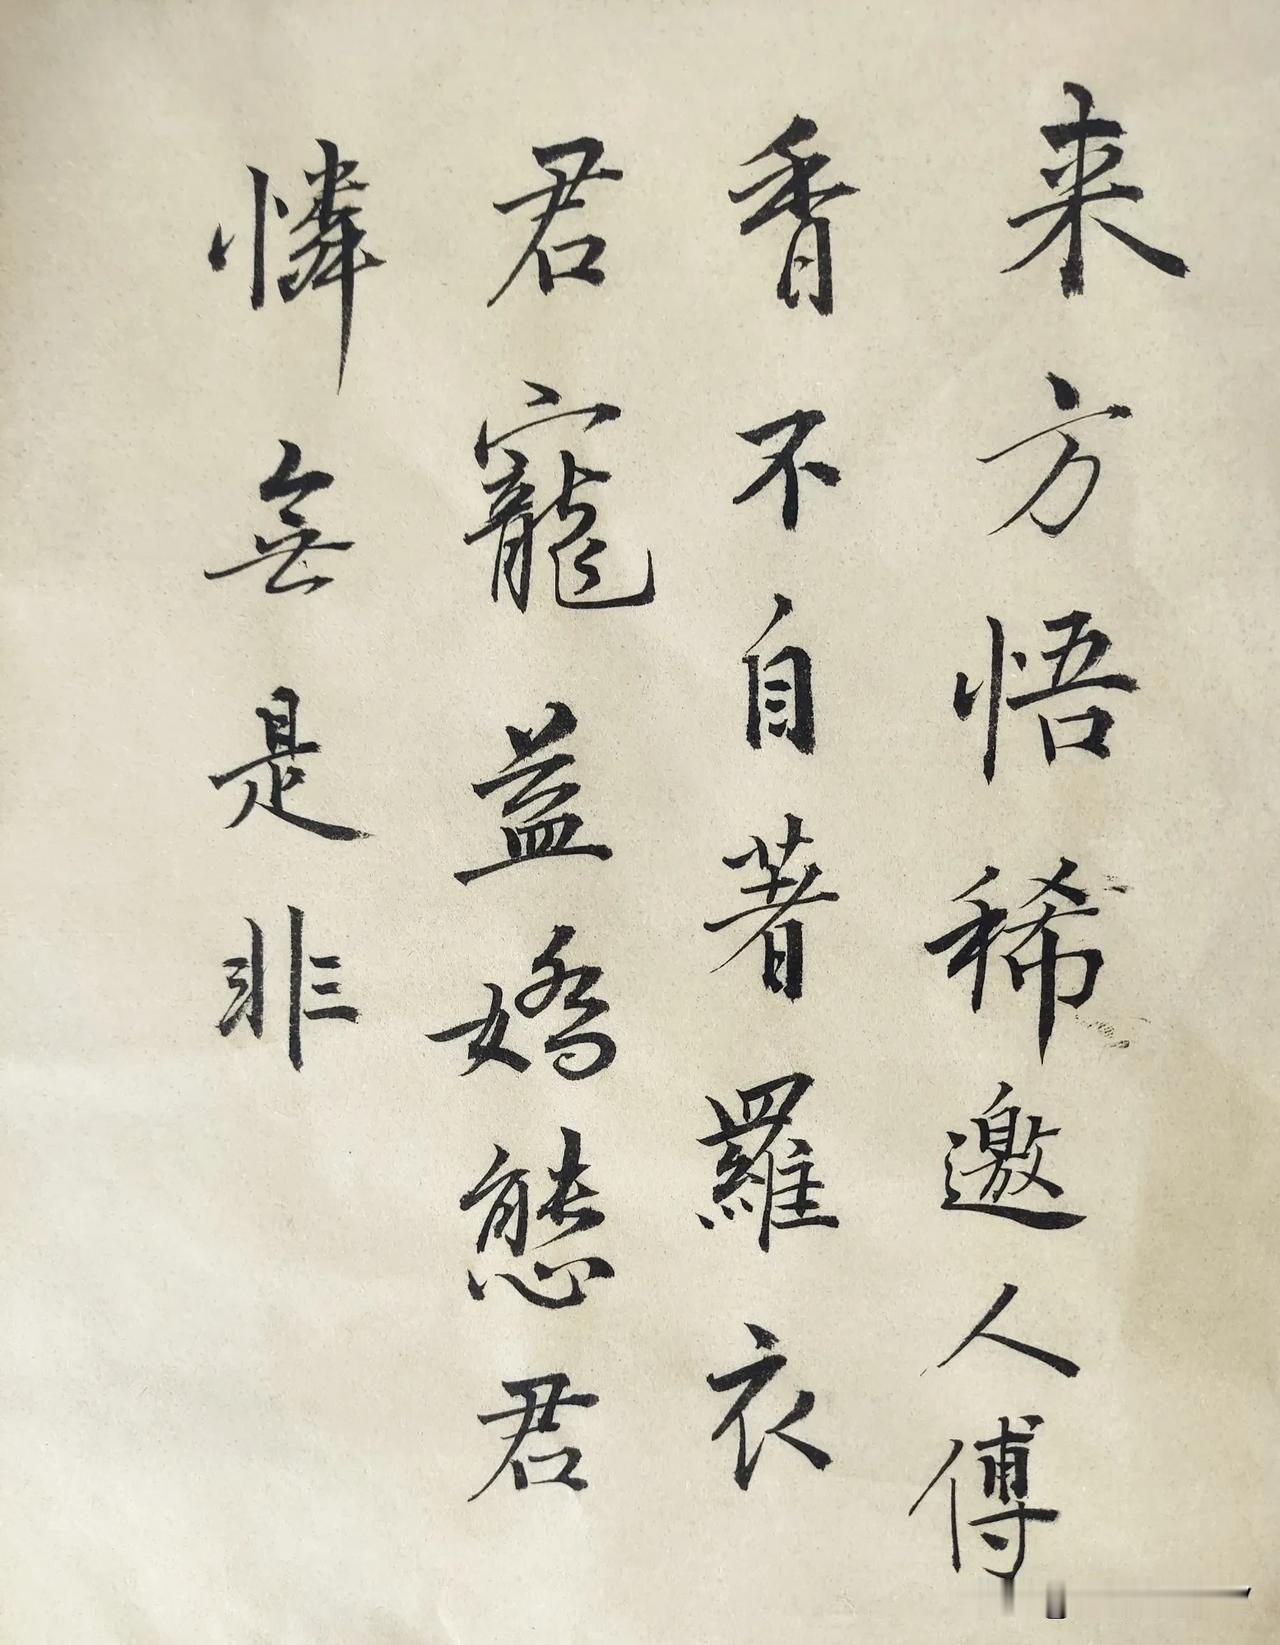 来方悟稀邀人傅
香不自著羅衣
君寵益嬌態君
憐無是非